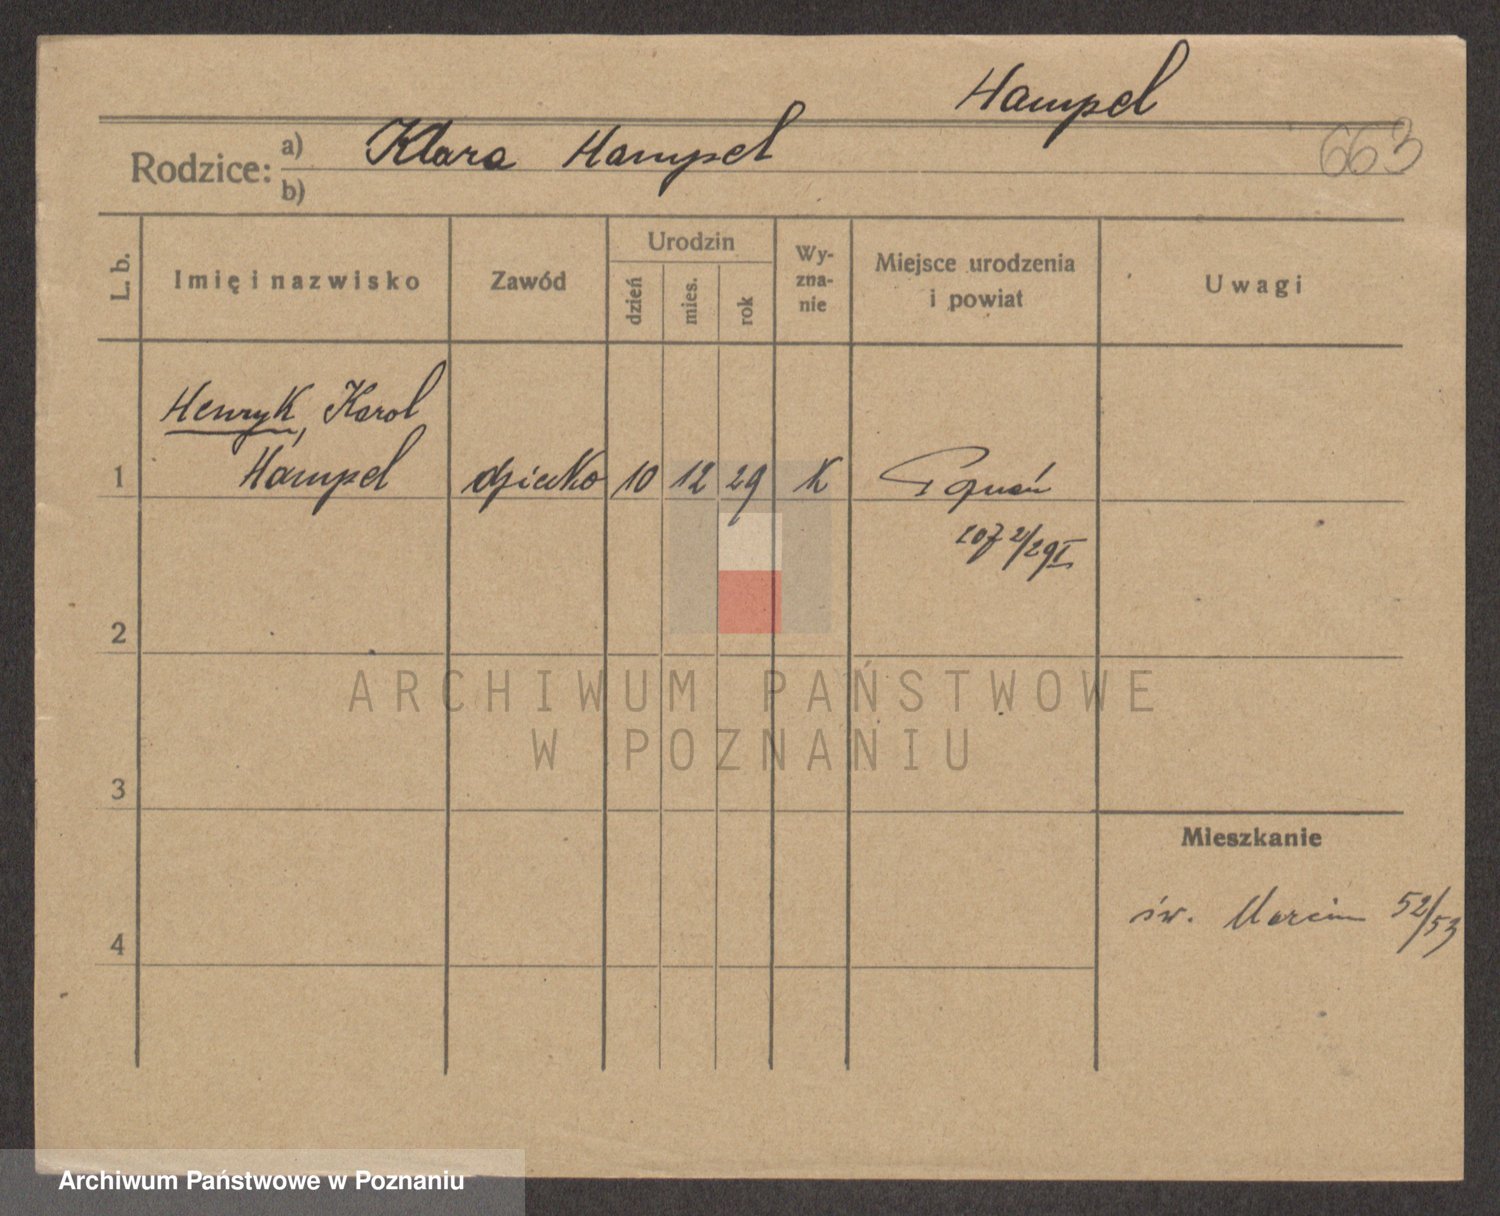 Hampel
663
Rodzice: a) Klara Hampel
b)
L. b.
Imię i nazwisko
Zawód
Urodzin
dzień
mies.
rok
Wy-
zna-
nie
Miejsce urodzenia
i powiat
Uwagi
Henryk, Karol
1 Hampel dziecko 10 12 29 K Poznań
2
3
4
ARCHIWUM PAŃSTWOWE
W POZNANIU
Mieszkanie
św. Marcin 52/53
Archiwum Państwowe w Poznaniu